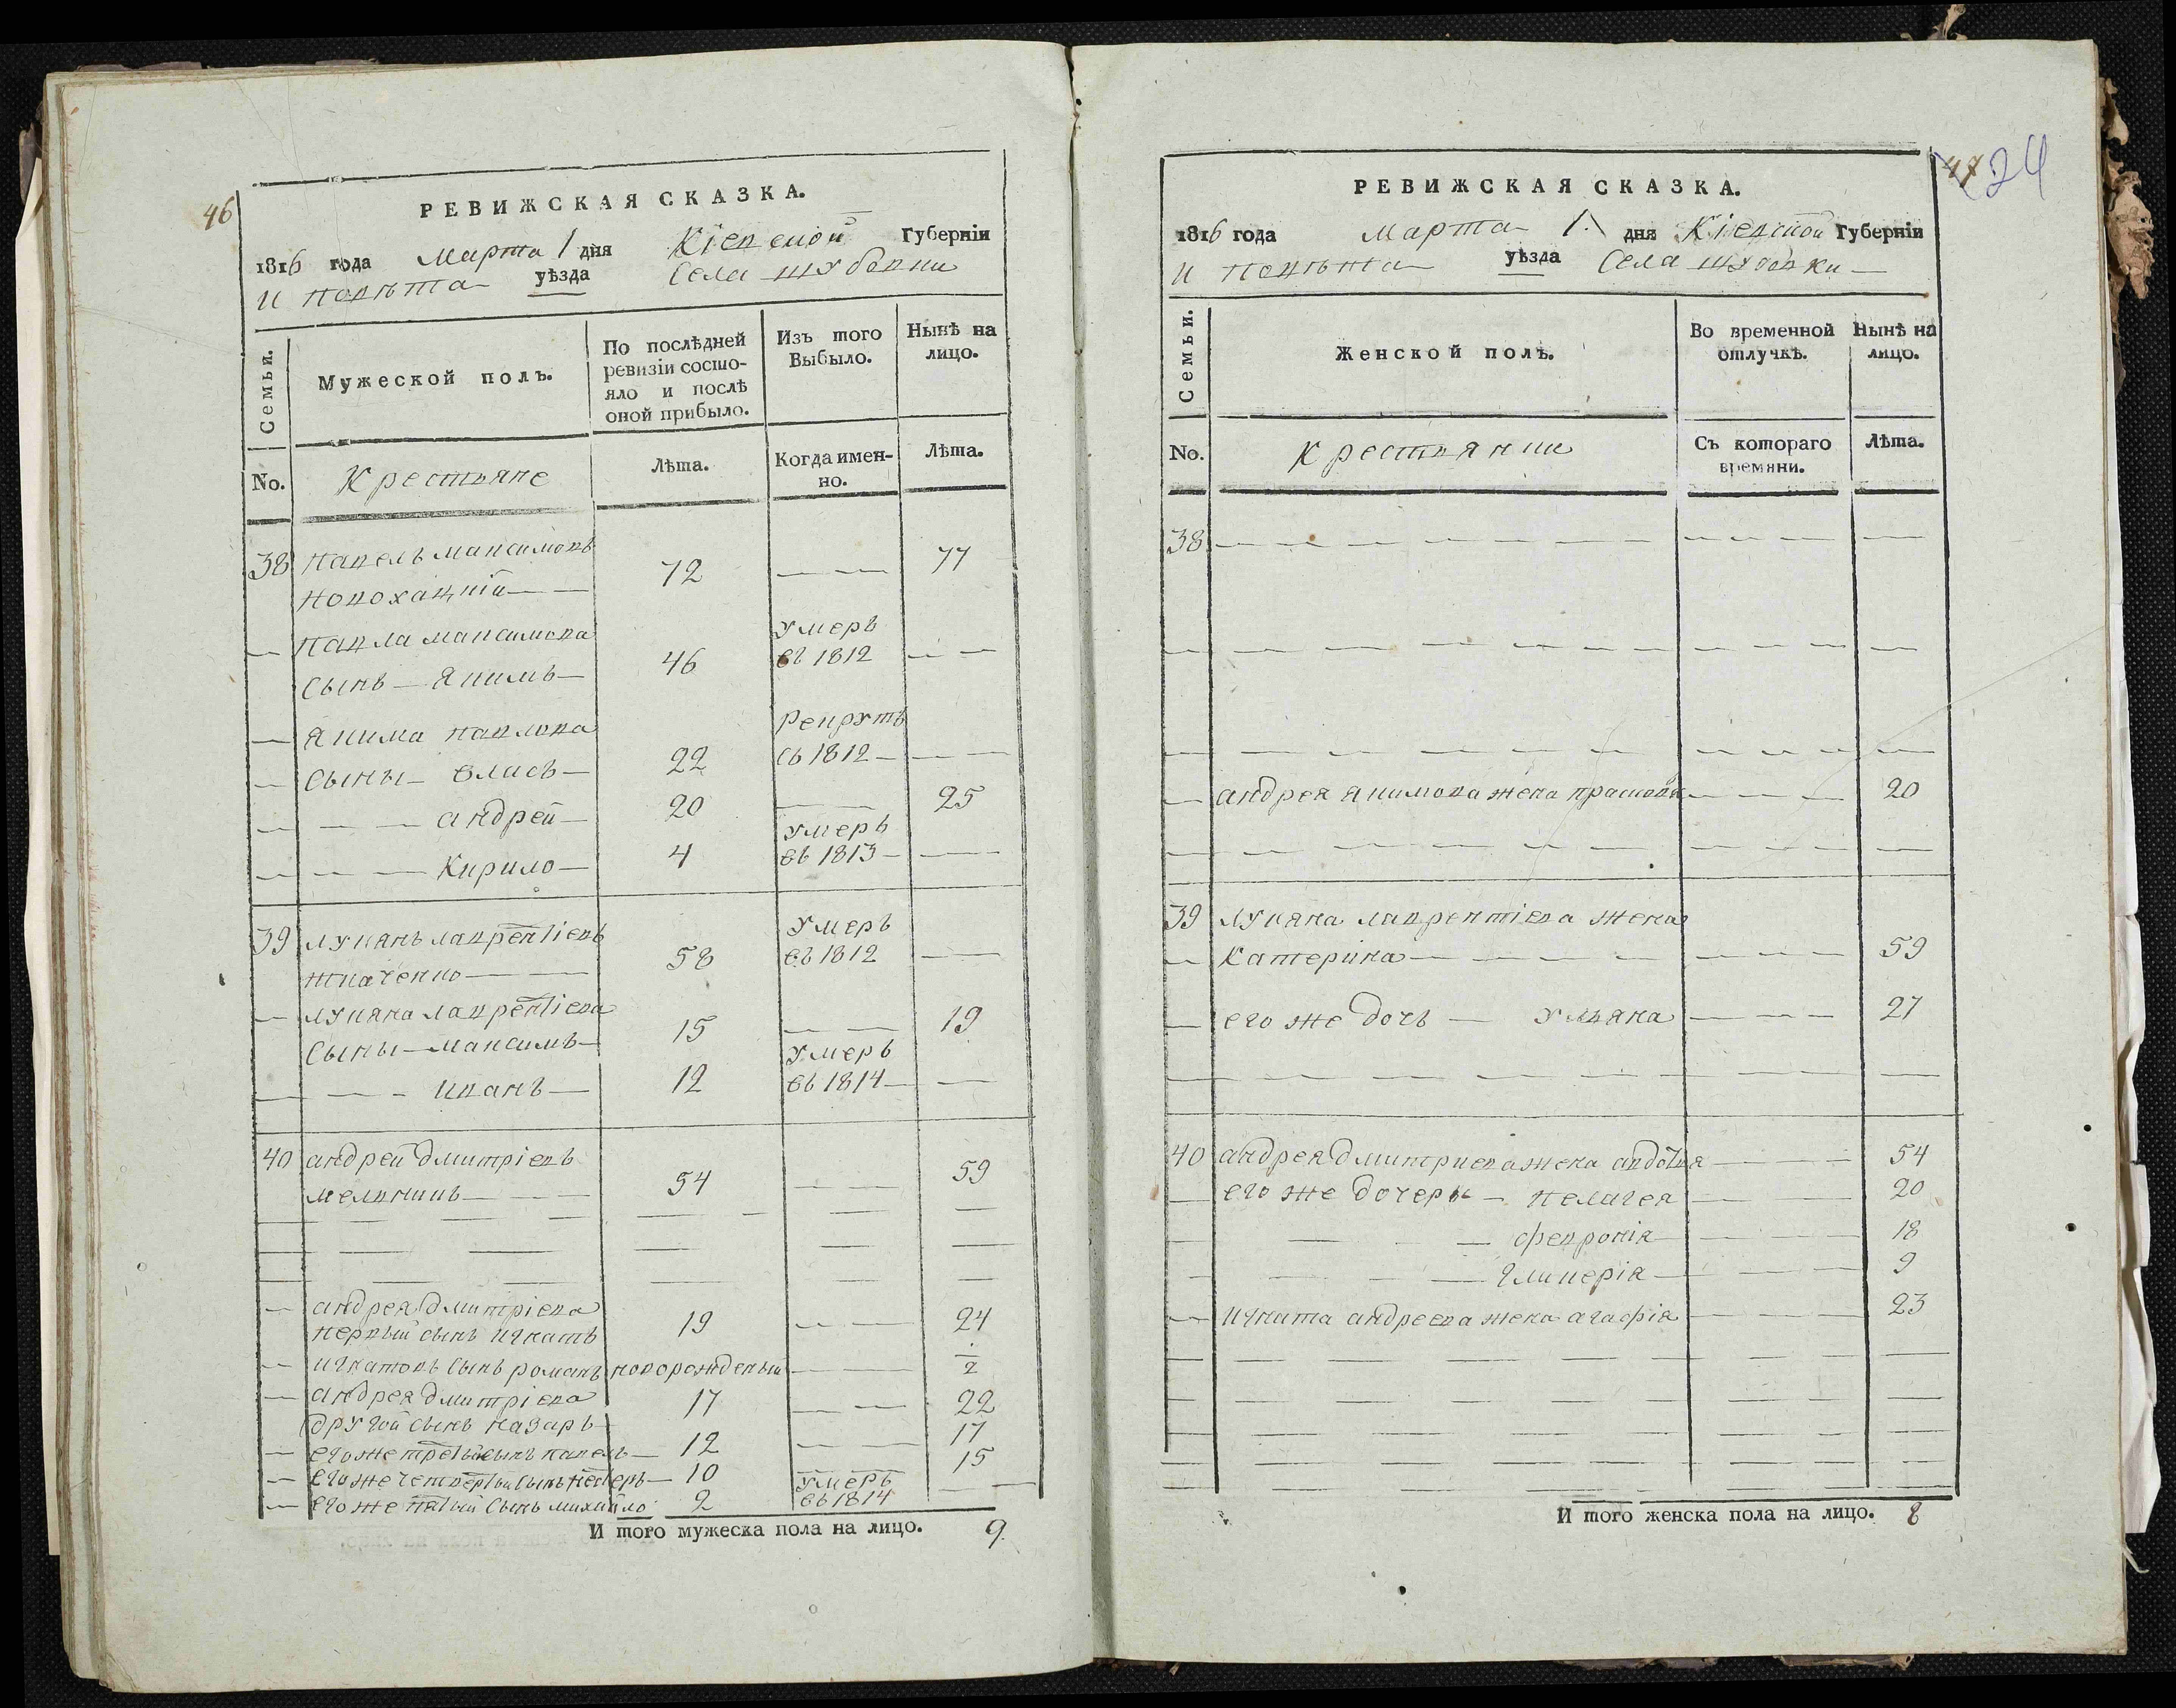 46
РЕВИЖСКАЯ СКАЗКА.
1816 года Марта 1 дня Кіевской Губерніи
и повѣта уѣзда Села Жуковки
Семьи.
Мужеской полъ.
По послѣдней ревизіи состо-
яло и послѣ
оной прибыло.
Изъ того
Выбыло.
Нынѣ на
лицо.
No.
Крестьяне
Лѣта.
Когда имен-
но.
Лѣта.
38 Павелъ Максимовъ
72 — — 77
— Павла Максимова
умеръ
сынъ — Якимъ — 46 въ 1812 — —
— Якима Павлова
рекрутъ
— сыны — Власъ — 22 въ 1812 — —
— — — Андрей — 20 — — 25
умеръ
— — — Кирило — 4 въ 1813 — —
39 Лукянъ Лаврентіевъ
умеръ
Ткаченко — — 58 въ 1812 — —
— Лукяна Лаврентіева
сыны — Максимъ — 15 — — 19
умеръ
— — — Иванъ — 12 въ 1814 — —
40 Андрей Дмитріевъ
Мельникъ — — 54 — — 59
— Андрея Дмитріева
первый сынъ Игнатъ 19 — — 24
— Игнатовъ сынъ Романъ новорожденый — — 2
— Андрея Дмитріева
другой сынъ Назаръ 17 — — 22
— его же третый сынъ Павелъ — 12 — — 17
— его же четвертый сынъ Нестеръ — 10 — — 15
умеръ
— его же пятый сынъ Михайло 2 въ 1814 — —
И того мужеска пола на лицо. 9.
47
24
РЕВИЖСКАЯ СКАЗКА.
1816 года Марта 1. дня Кіевской Губерніи
и повѣта уѣзда Села Жуковки —
Семьи.
Женской полъ.
Во временной
отлучкѣ.
Нынѣ на
лицо.
No.
Крестьянки
Съ котораго
времяни.
Лѣта.
38 — — —
— Андрея Якимова жена Прасковя — — — 20
39 Лукяна Лаврентіева жена
— Катерина — — — 59
— его же дочь — Ульяна — — — 27
40 Андрея Дмитриева жена Авдотя — — 54
— его же дочеры — Пелагея — — 20
— — — Февронія — — 18
— — — Гликерія — — 9
— Игната Андреева жена Агафія — — 23
И того женска пола на лицо. 8